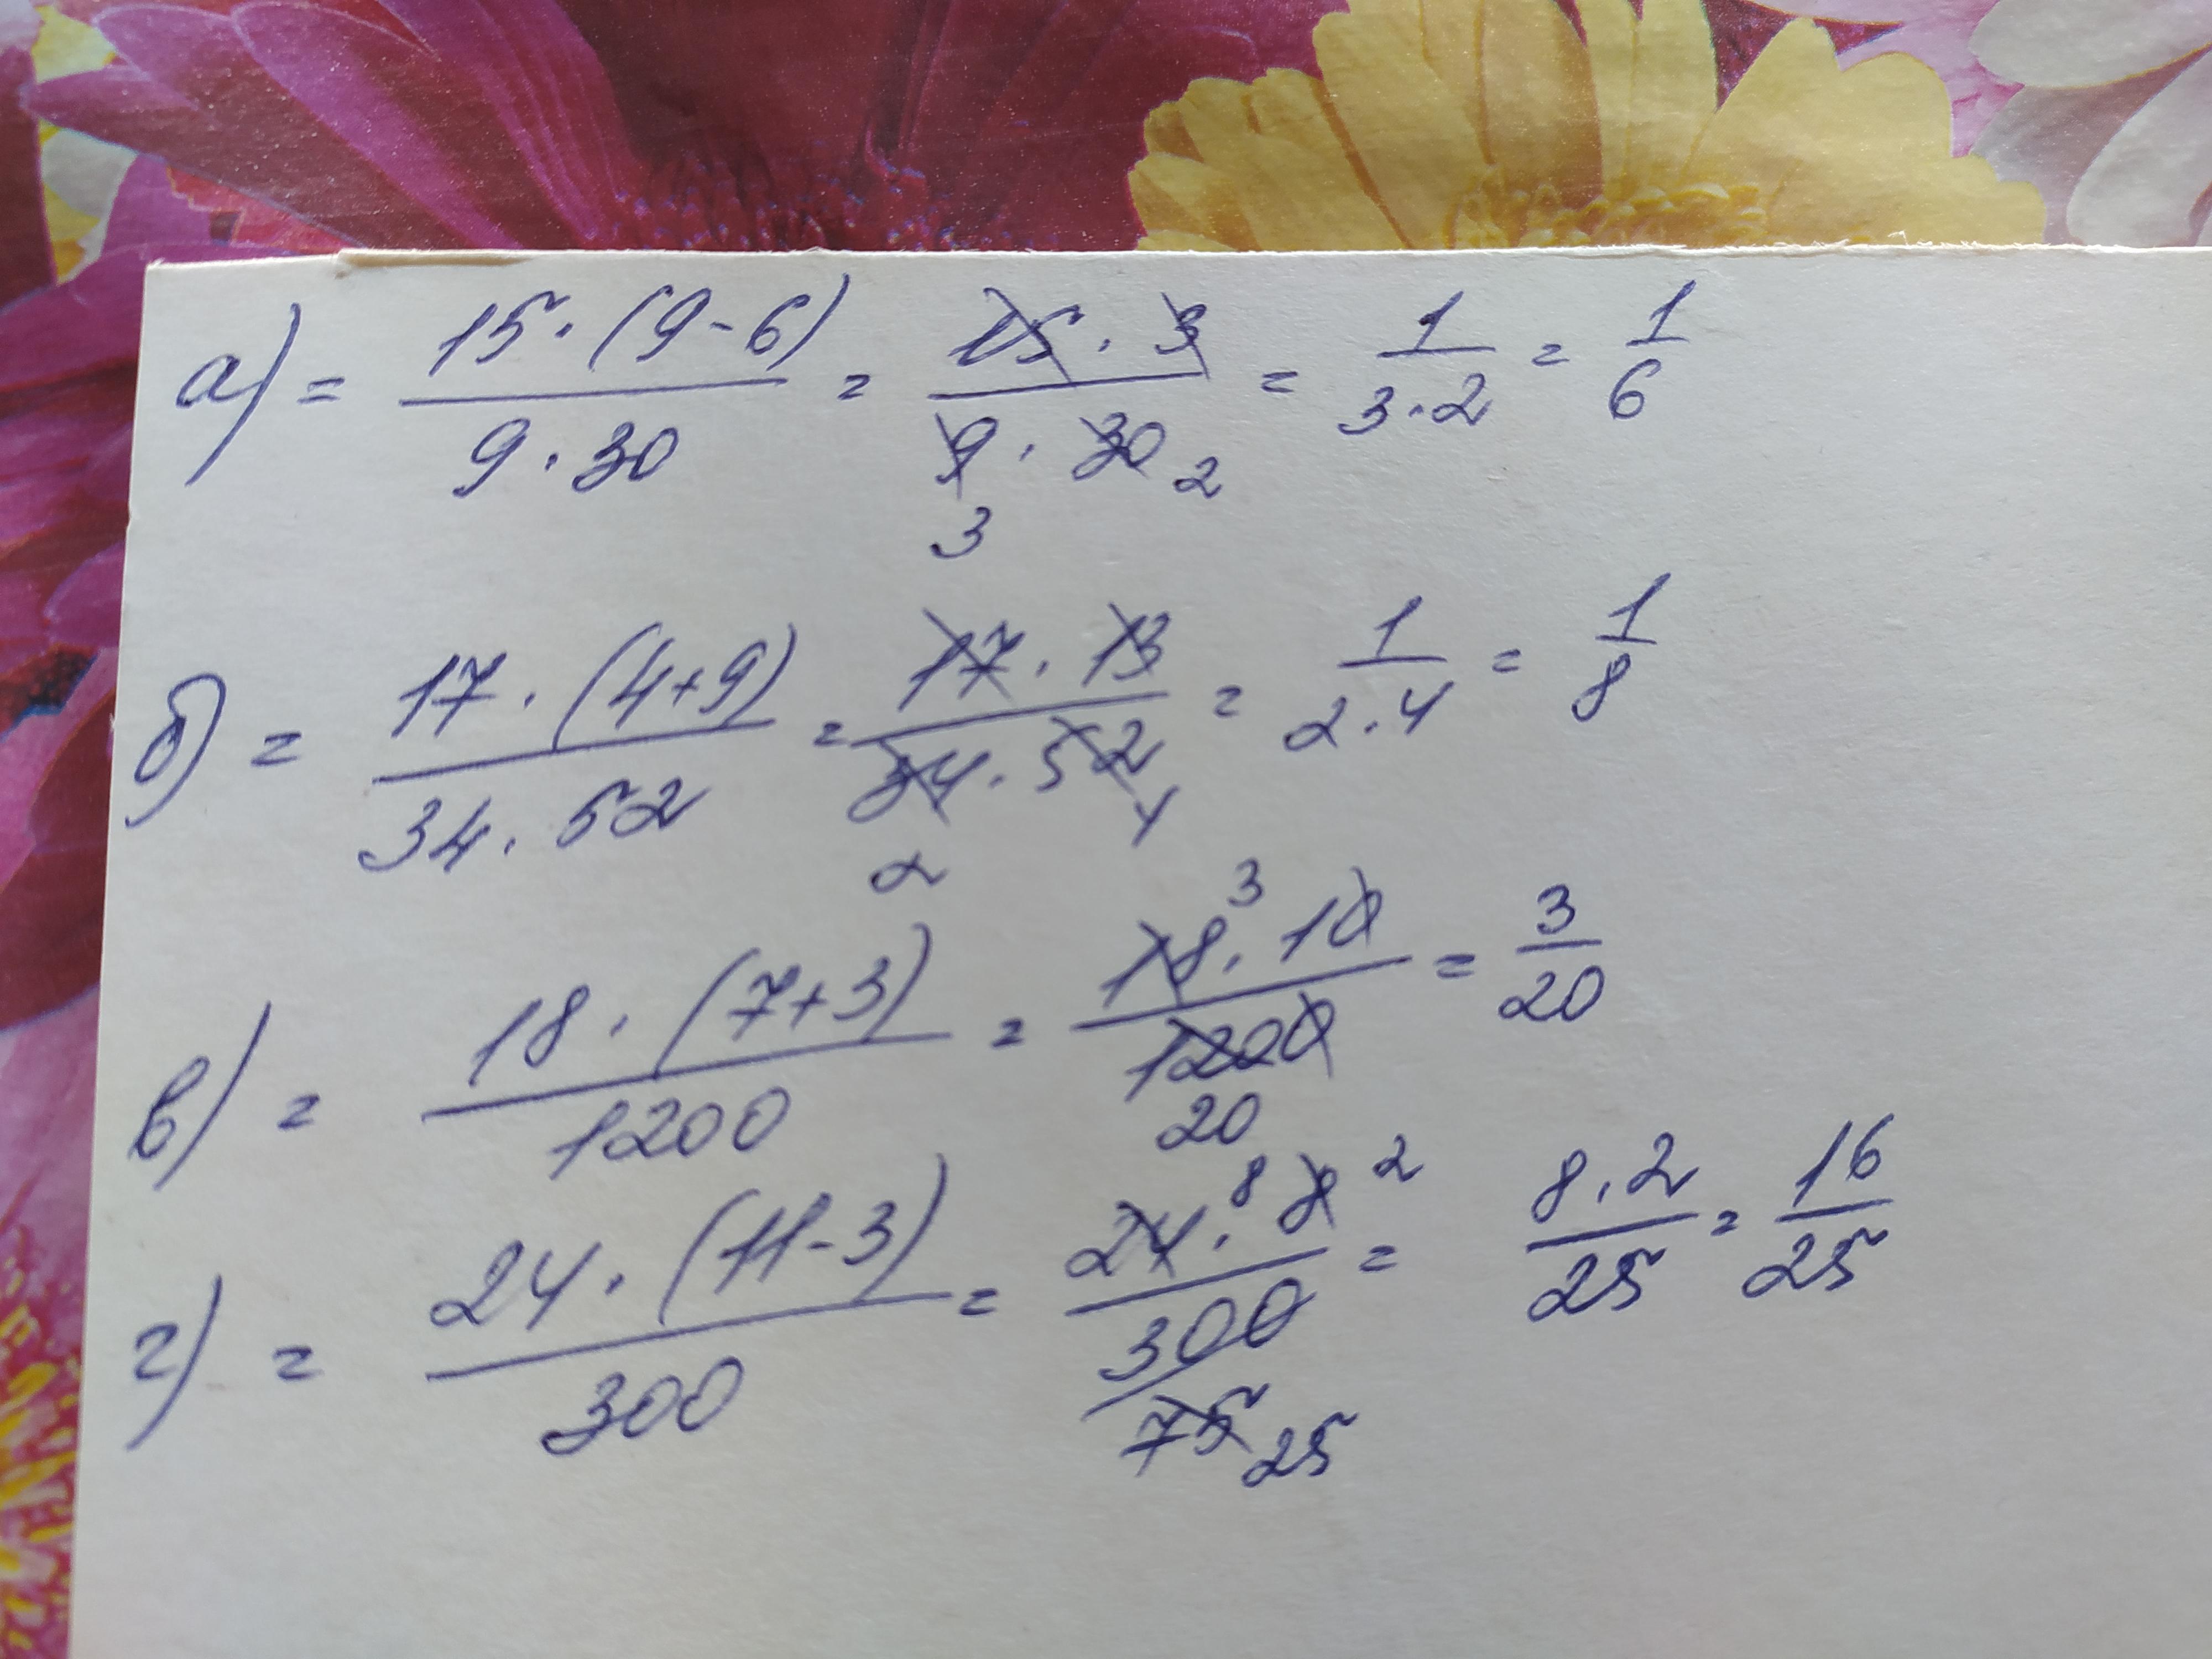 а) = 15·(9-6) / 9·30 = 15·3 / 9·30 3 2 = 1 / 3·2 = 1 / 6
б) = 17·(4+9) / 34·52 = 17·13 / 34·52 2 4 = 1 / 2·4 = 1 / 8
в) = 18·(7+3) / 1200 = 18 3·10 / 1200 20 = 3 / 20
г) = 24·(11-3) / 300 = 24 8·8 2 / 300 75 25 = 8·2 / 25 = 16 / 25